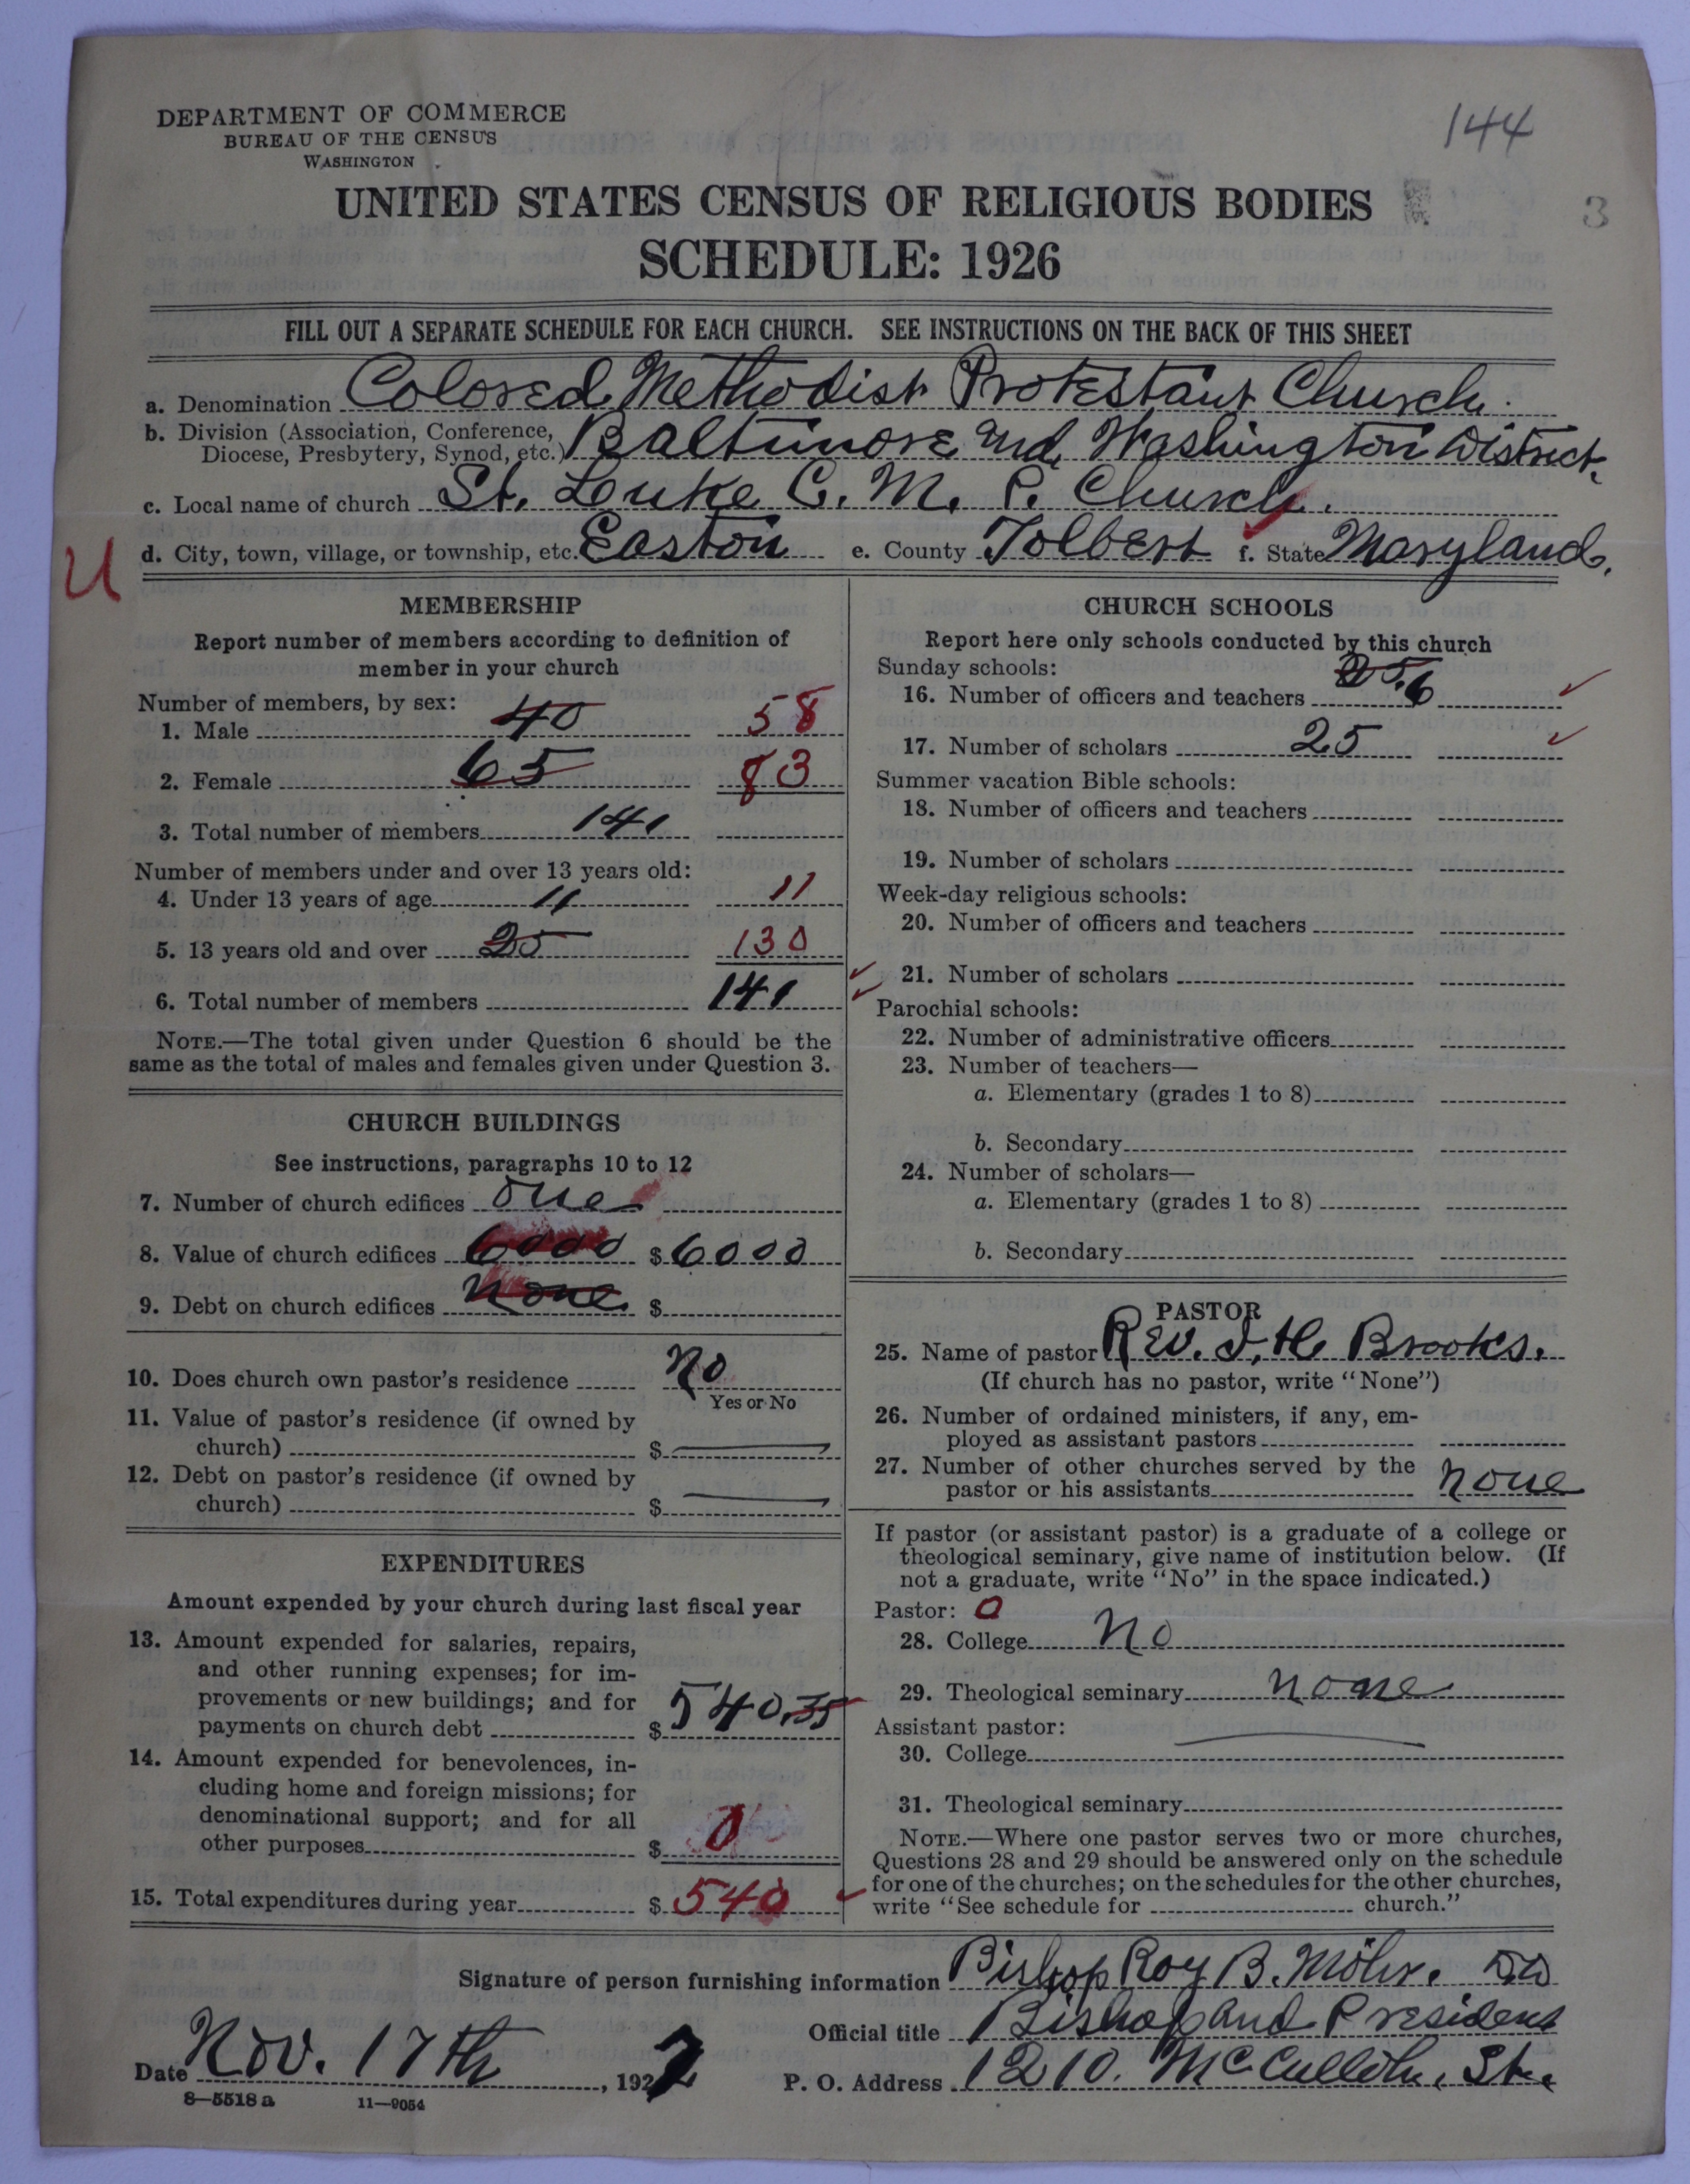 144
3
DEPARTMENT OF COMMERCE
BUREAU OF THE CENSUS
WASHINGTON
UNITED STATES CENSUS OF RELIGIOUS BODIES
SCHEDULE: 1926
FILL OUT A SEPARATE SCHEDULE FOR EACH CHURCH. SEE INSTRUCTIONS ON THE BACK OF THIS SHEET
a. Denomination Colored Methodist Protestant Church.
b. Division (Association, Conference,
Diocese, Presbytery, Synod, etc.) Baltimore and Washington District.
c. Local name of church St. Louke C. M. P. Church.
U d. City, town, village, or township, etc. Easton e. County Tolbert f. State Maryland.
MEMBERSHIP
Report number of members according to definition of
member in your church
Number of members, by sex:
1. Male 40 58
2. Female 65 83
3. Total number of members 141
Number of members under and over 13 years old:
4. Under 13 years of age 11 11
5. 13 years old and over 25 130
6. Total number of members 141
NOTE.—The total given under Question 6 should be the
same as the total of males and females given under Question 3.
CHURCH BUILDINGS
See instructions, paragraphs 10 to 12
7. Number of church edifices one
8. Value of church edifices 6000 $6000
9. Debt on church edifices None $
10. Does church own pastor's residence No
Yes or No
11. Value of pastor's residence (if owned by
church) $
12. Debt on pastor's residence (if owned by
church) $
EXPENDITURES
Amount expended by your church during last fiscal year
13. Amount expended for salaries, repairs,
and other running expenses; for im-
provements or new buildings; and for
payments on church debt $540.35
14. Amount expended for benevolences, in-
cluding home and foreign missions; for
denominational support; and for all
other purposes $0
15. Total expenditures during year $540
CHURCH SCHOOLS
Report here only schools conducted by this church
Sunday schools:
16. Number of officers and teachers 25. 6
17. Number of scholars 25
Summer vacation Bible schools:
18. Number of officers and teachers
19. Number of scholars
Week-day religious schools:
20. Number of officers and teachers
21. Number of scholars
Parochial schools:
22. Number of administrative officers
23. Number of teachers—
a. Elementary (grades 1 to 8)
b. Secondary
24. Number of scholars—
a. Elementary (grades 1 to 8)
b. Secondary
PASTOR
25. Name of pastor Rev. J. H. Brooks.
(If church has no pastor, write "None")
26. Number of ordained ministers, if any, em-
ployed as assistant pastors
27. Number of other churches served by the
pastor or his assistants none
If pastor (or assistant pastor) is a graduate of a college or
theological seminary, give name of institution below. (If
not a graduate, write "No" in the space indicated.)
Pastor: 0
28. College No
29. Theological seminary none
Assistant pastor:
30. College
31. Theological seminary
NOTE.—Where one pastor serves two or more churches,
Questions 28 and 29 should be answered only on the schedule
for one of the churches; on the schedules for the other churches,
write "See schedule for church."
Signature of person furnishing information Bishop Roy B. DD
Official title Bishop and President
Date Nov. 17th, 1927 P. O. Address 1210. McCulloh. St.
8—5518 a 11—9054